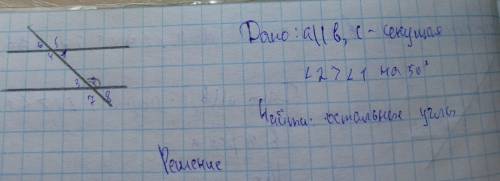 Дано: a||b, c - секущая
∠2>∠1 на 50°
Найти: остальные углы
Решение
5
4
3
7 8